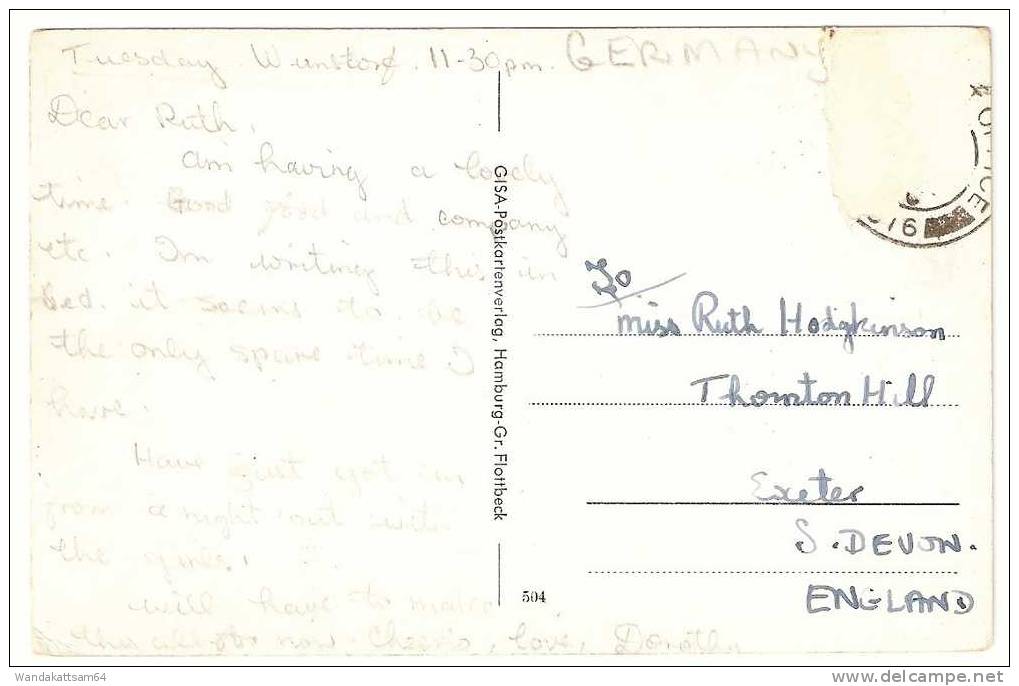 Tuesday. Wunstorf. 11-30pm. GERMANY
Dear Ruth,
am having a lovely
time. Good food and company
etc. Im writing this in
bed. it seems to be
the only spare time I
have.
Have just got in,
from a night out with
the girls.
will have to make
this all for now. Cheerio, love, Dorothy
GISA-Postkartenverlag, Hamburg-Gr. Flottbeck
504
OFFICE
976
To
Miss Ruth Hodgkinson
Thornton Hill
Exeter
S. DEVON.
ENGLAND
Wandakattsam64
delcampe.net